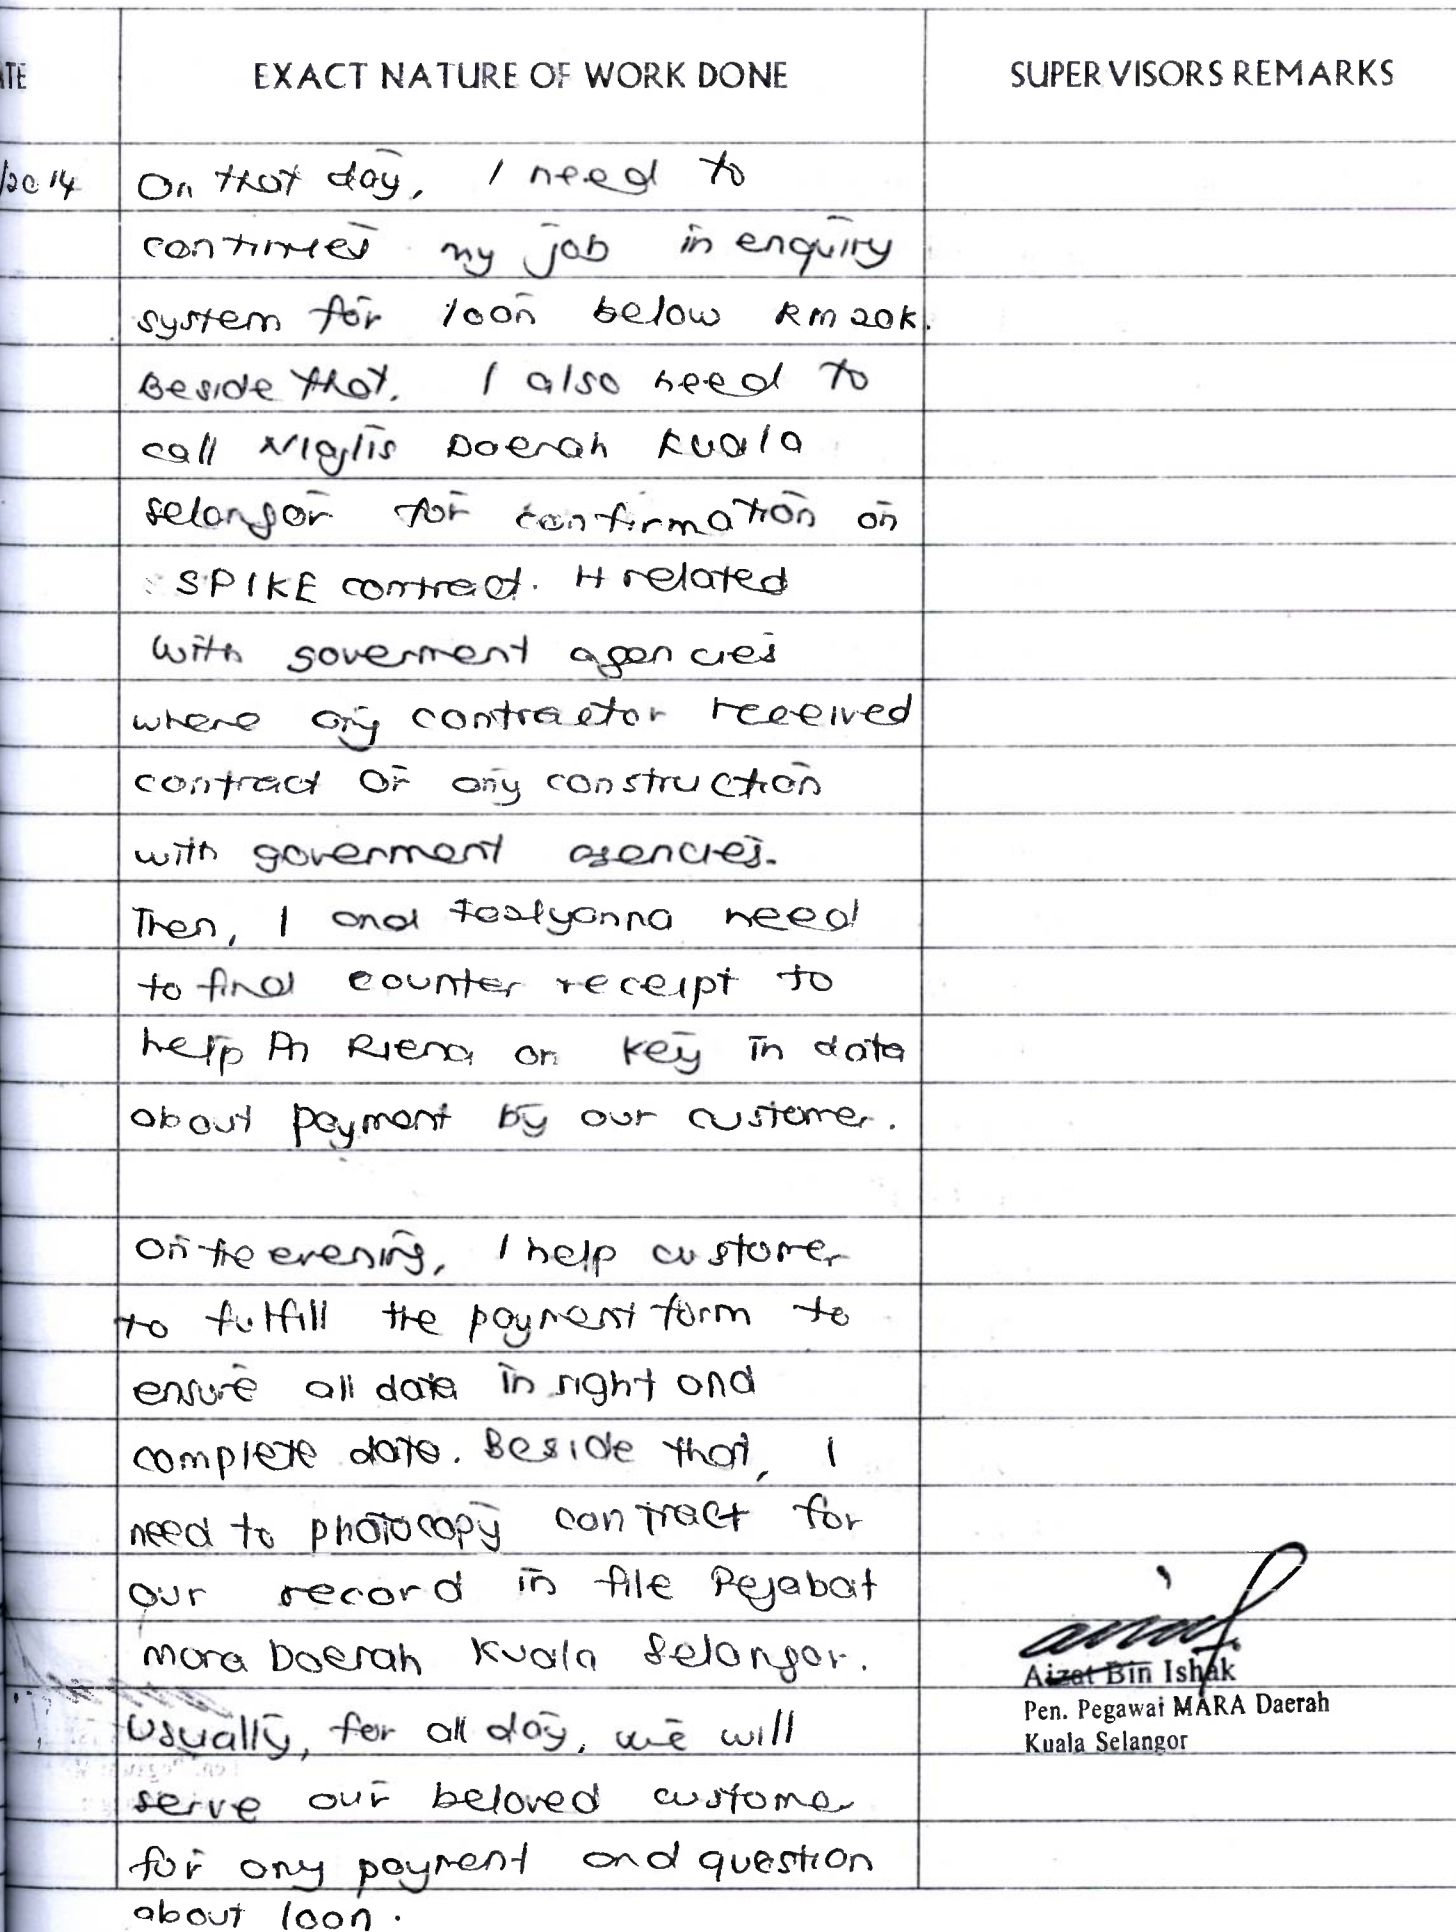 ATE
EXACT NATURE OF WORK DONE
SUPERVISORS REMARKS
/2014
On that day, I need to
continues my job in enquiry
system for loan below RM20K.
Beside that, I also need to
call Majlis Daerah Kuala
Selangor for confirmation on
SPIKE contract. It related
with goverment agencies
where any contractor received
contract or any construction
with goverment agencies.
Then, I and need
to find counter receipt to
help Pn Riena on key in data
about payment by our customer.
On the evening, I help customer
to fulfill the payment form to
ensure all data in right and
complete data. Beside that, I
need to photocopy contract for
our record in file Pejabat
Mara Daerah Kuala Selangor.
Usually, for all day, we will
serve our beloved customer
for any payment and question
about loan.
Aizat Bin Ishak
Pen. Pegawai MARA Daerah
Kuala Selangor